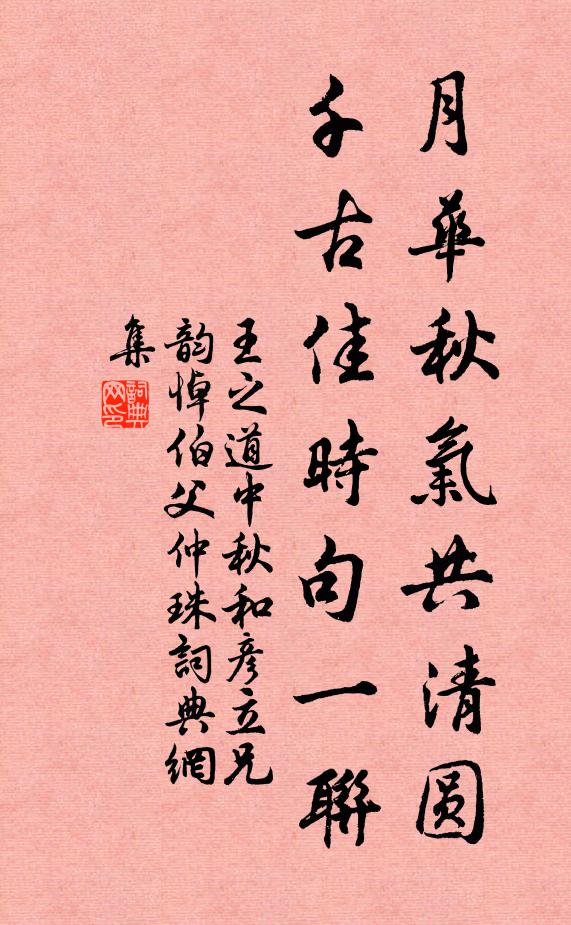 月華秋氣共清圓
千古佳時句一聯
王之道中秋和彦立兄
韵悼伯父仲珠詞典網
集
詞典網印